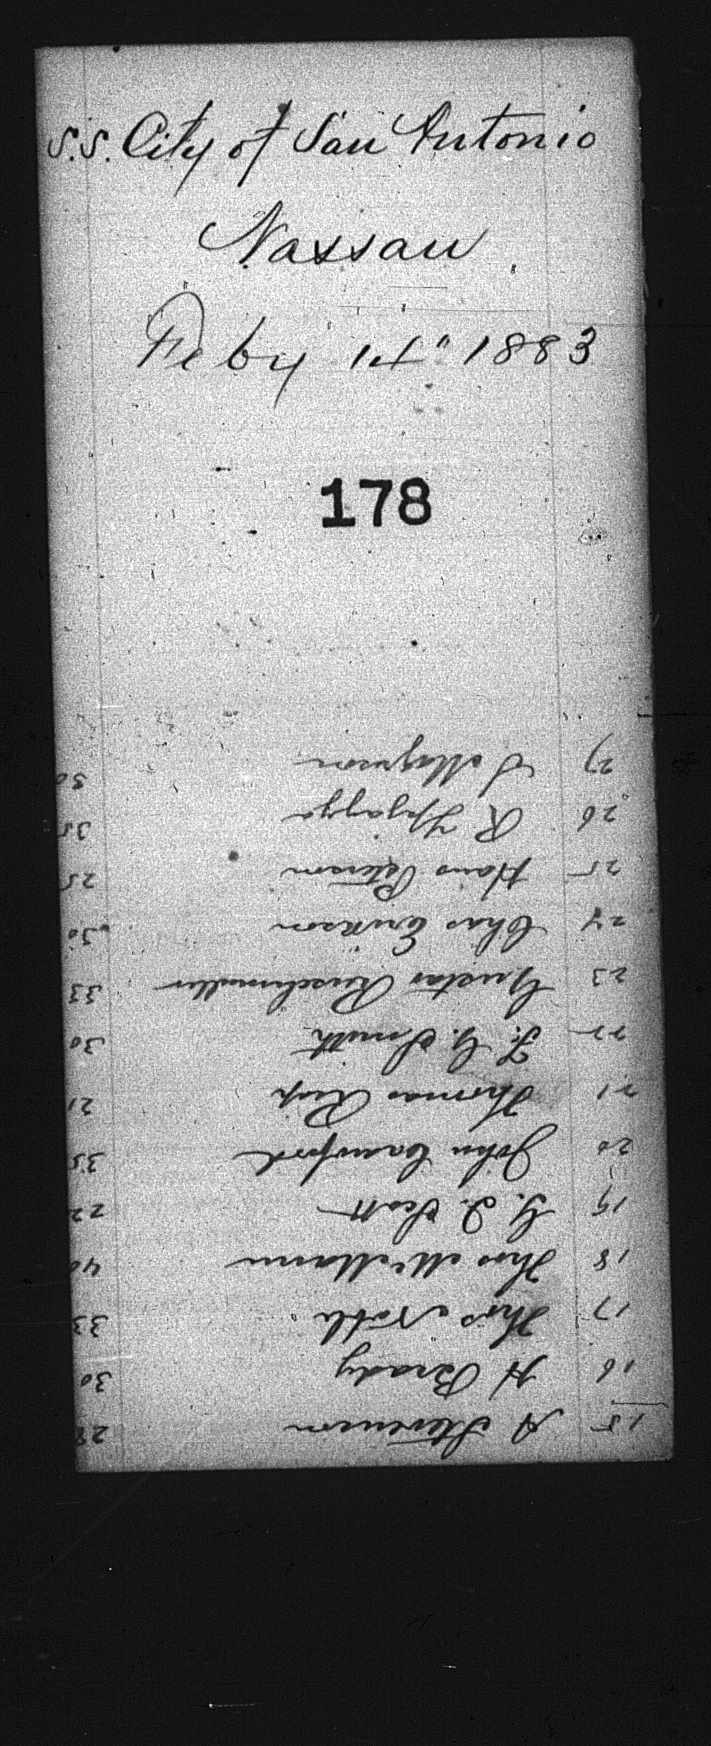 S.S. City of San Antonio
Nassau
Feby 14" 1883
178
15 A Stevenson 28
16 H Brady 30
17 Thos Noble 33
18 Thos McMann 40
19 G. D. Scott 22
20 John Crawford 35
21 Thomas 21
22 F. G. Smith 30
23 Gustav 33
24 Chas Erikson 30
25 Hans Peterson 25
26 R 35
27 Magnuson 30